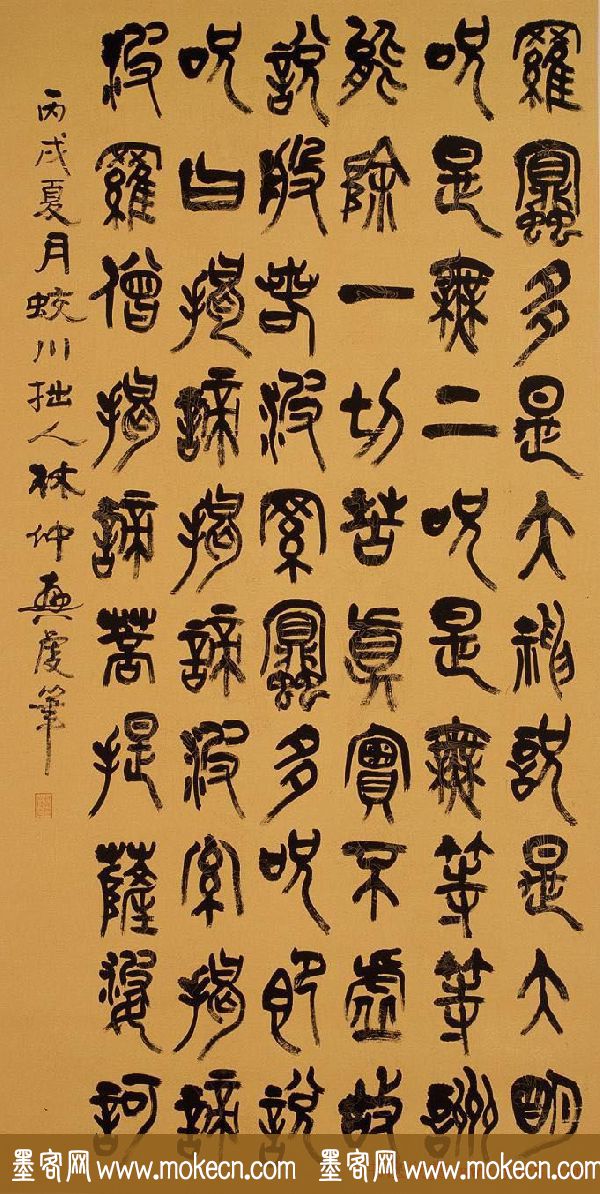 羅蜜多是大神詋是大明
呪是無二呪是無等等詶
能除一切苦眞實不虛故
說般若波羅蜜多呪即說
呪曰揭諦揭諦波羅揭諦
波羅僧揭諦菩提薩婆訶
丙戌夏月蛟川拙人林仲興虔筆
墨客网 www.mokecn.com 墨客网 www.mokecn.com